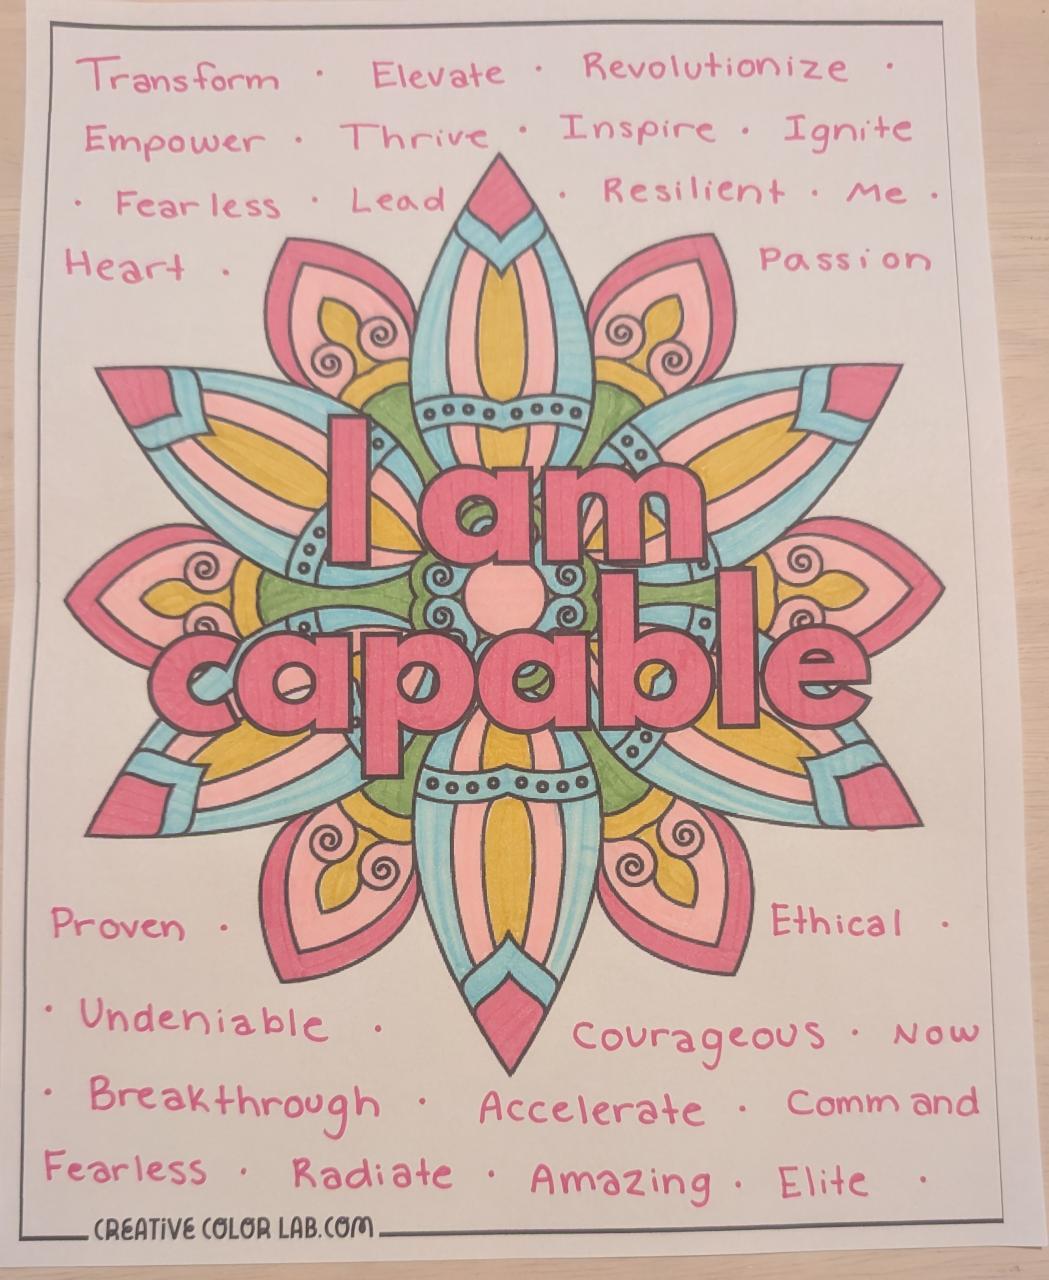 Transform · Elevate · Revolutionize ·
Empower · Thrive · Inspire · Ignite
· Fearless · Lead · Resilient · Me ·
Heart · Passion
I am
capable
Proven · Ethical ·
· Undeniable · Courageous · Now
· Breakthrough · Accelerate · Command
Fearless · Radiate · Amazing · Elite ·
CREATIVE COLOR LAB.COM